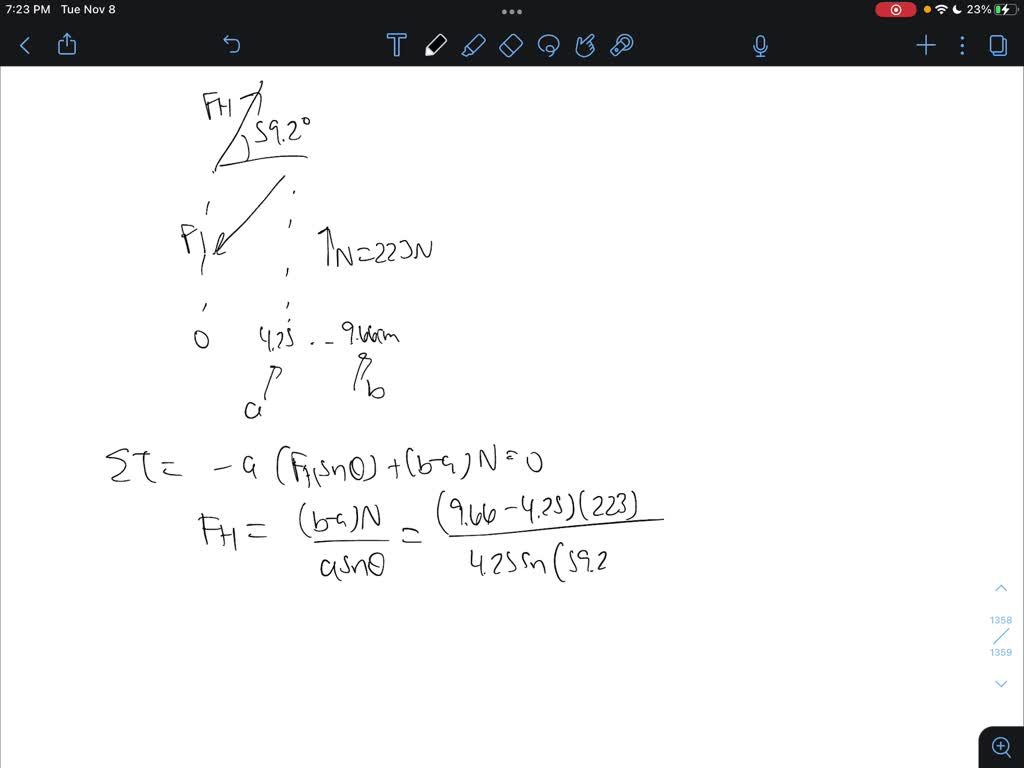 7:23 PM Tue Nov 8
23%
T
FH
59.2°
Fj
N=223N
0 4.25 .. 9.66cm
a
b
Στ= -a (FH sinθ) + (b-a) N = 0
FH = (b-a)N / a sinθ = (9.66 - 4.25)(223) / 4.25 sin (59.2
1358
1359